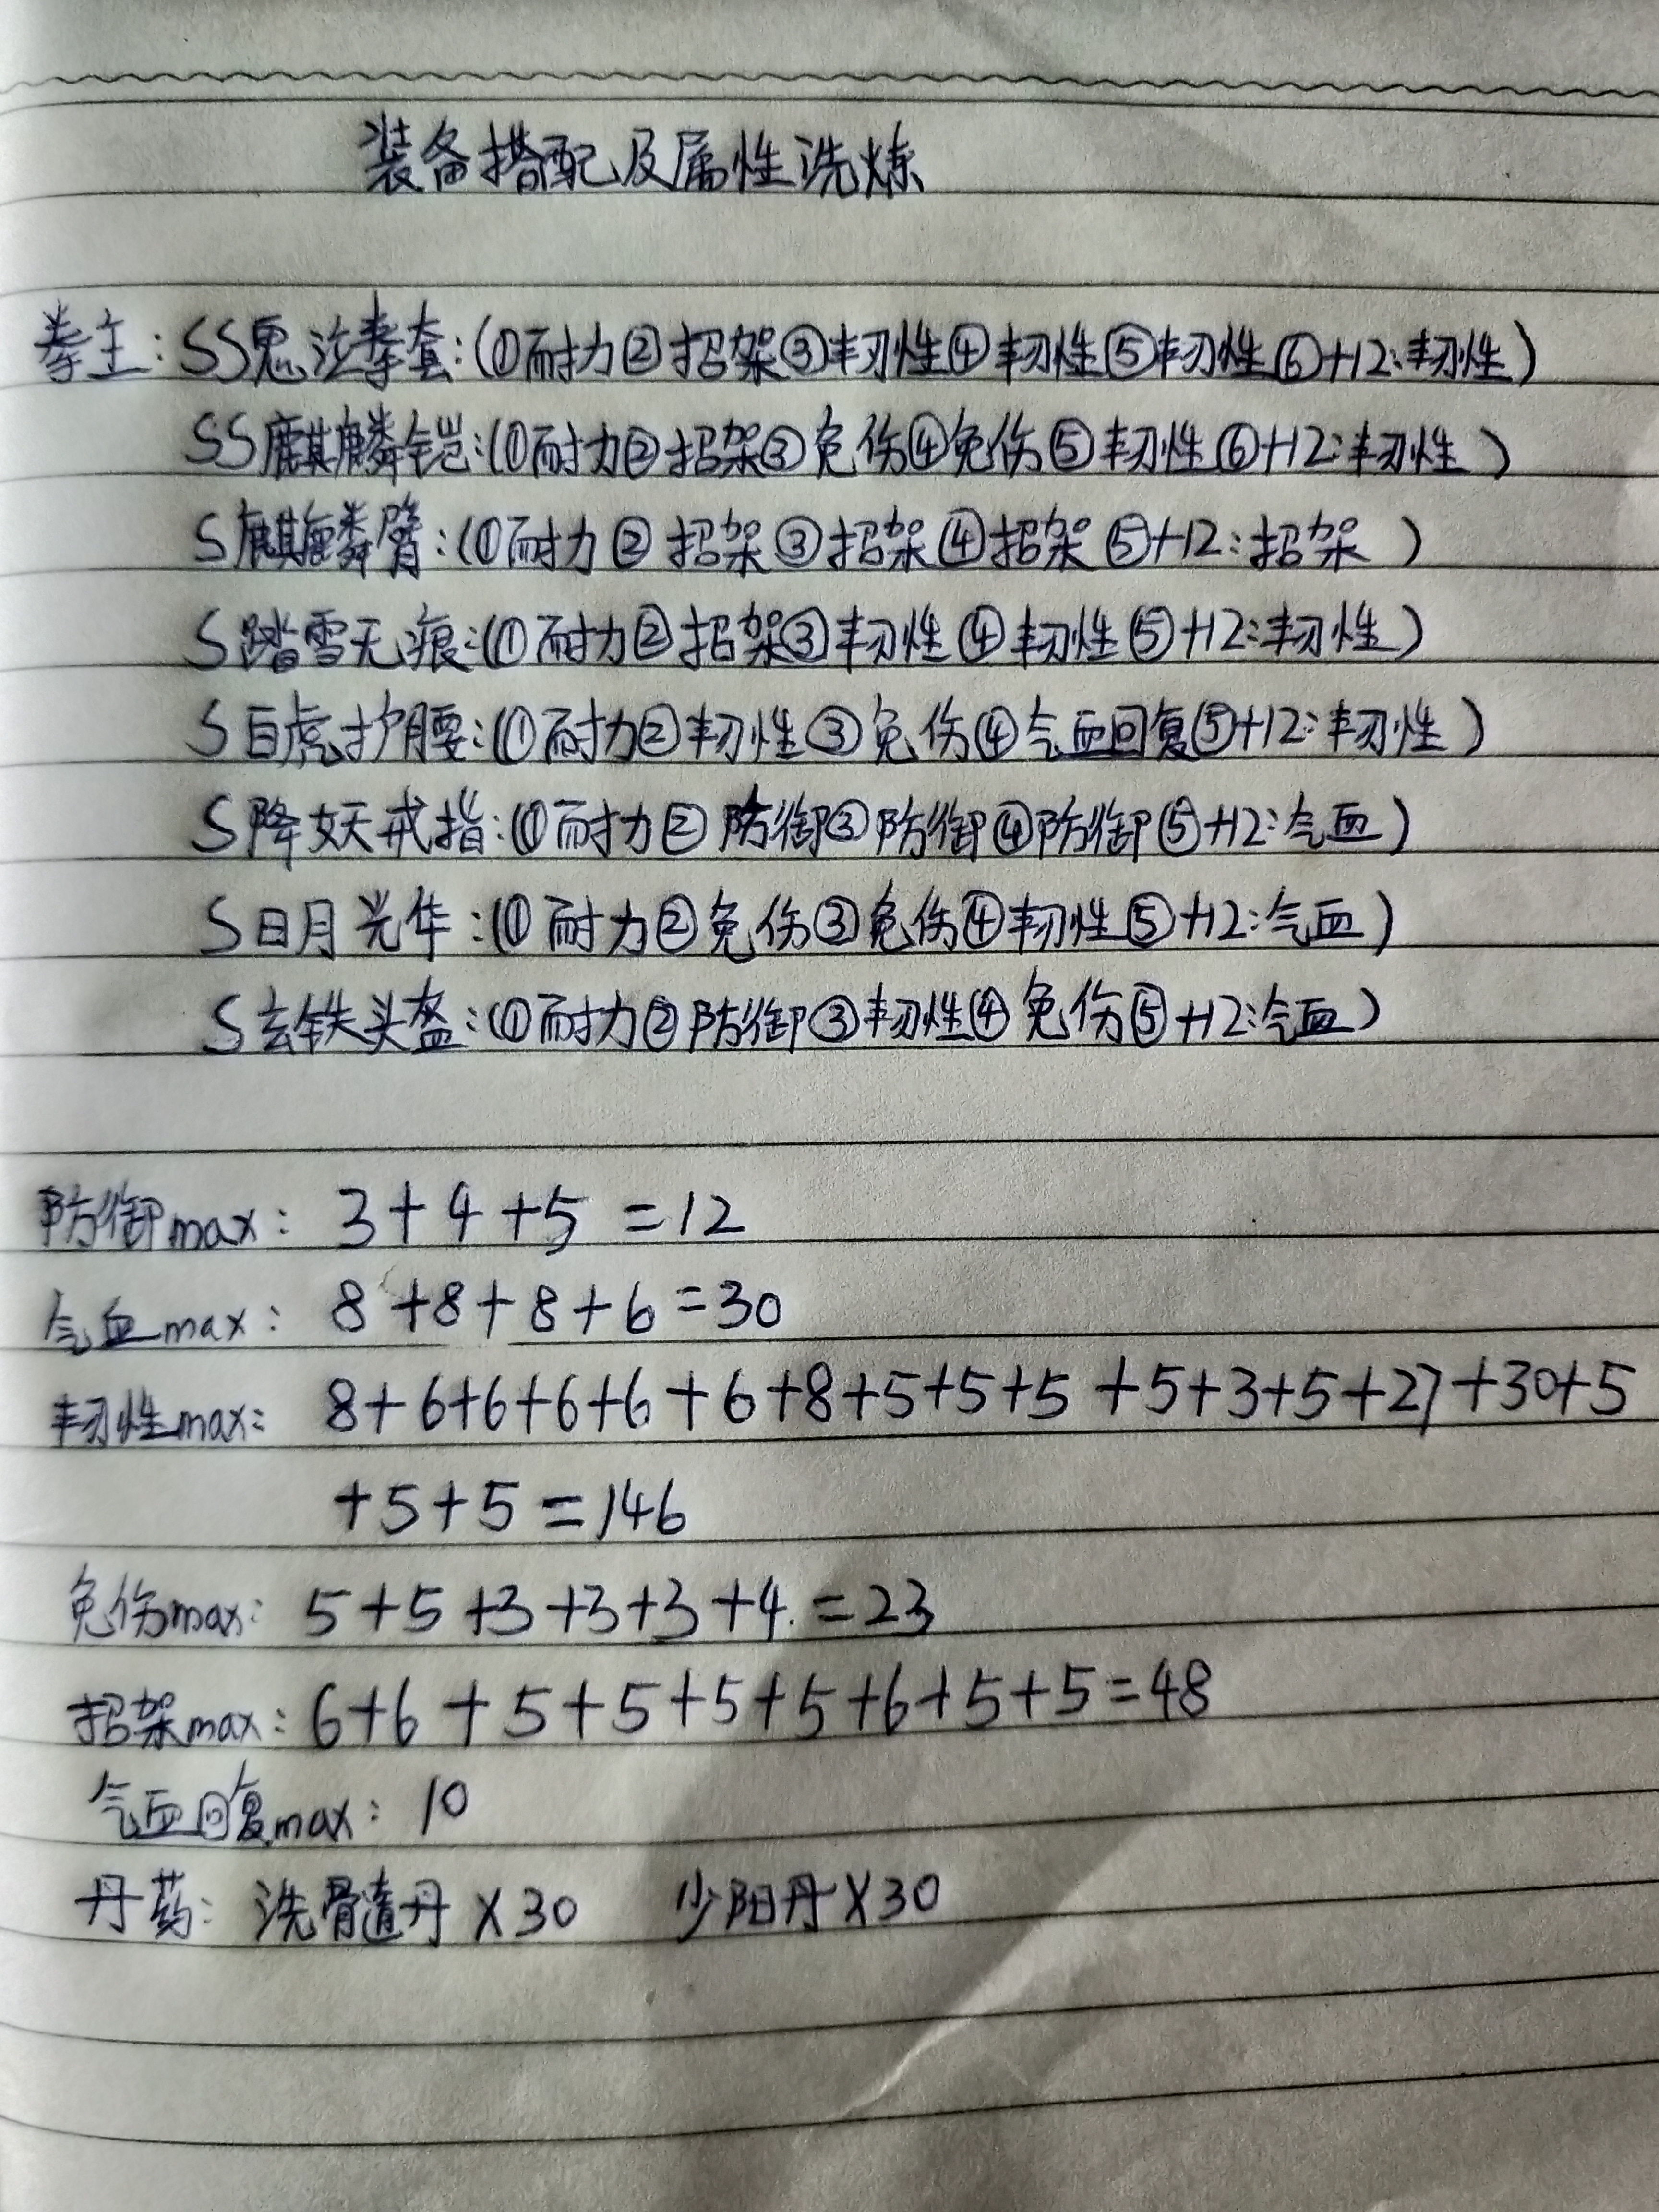 装备搭配及属性洗炼
拳主:SS鬼泣拳套:(①耐力②招架③韧性④韧性⑤韧性⑥+12:韧性)
SS麒麟铠:(①耐力②招架③免伤④免伤⑤韧性⑥+12:韧性)
S麒麟臂:(①耐力②招架③招架④招架⑤+12:招架)
S踏雪无痕:(①耐力②招架③韧性④韧性⑤+12:韧性)
S白虎护腰:(①耐力②韧性③免伤④气血回复⑤+12:韧性)
S降妖戒指:(①耐力②防御③防御④防御⑤+12:气血)
S日月光华:(①耐力②免伤③免伤④韧性⑤+12:气血)
S玄铁头盔:(①耐力②防御③韧性④免伤⑤+12:气血)
防御max: 3+4+5=12
气血max: 8+8+8+6=30
韧性max: 8+6+6+6+6+6+8+5+5+5+5+3+5+27+30+5
+5+5=146
免伤max: 5+5+3+3+3+4.=23
招架max: 6+6+5+5+5+5+6+5+5=48
气血回复max: 10
丹药: 洗骨髓丹X30 少阳丹X30